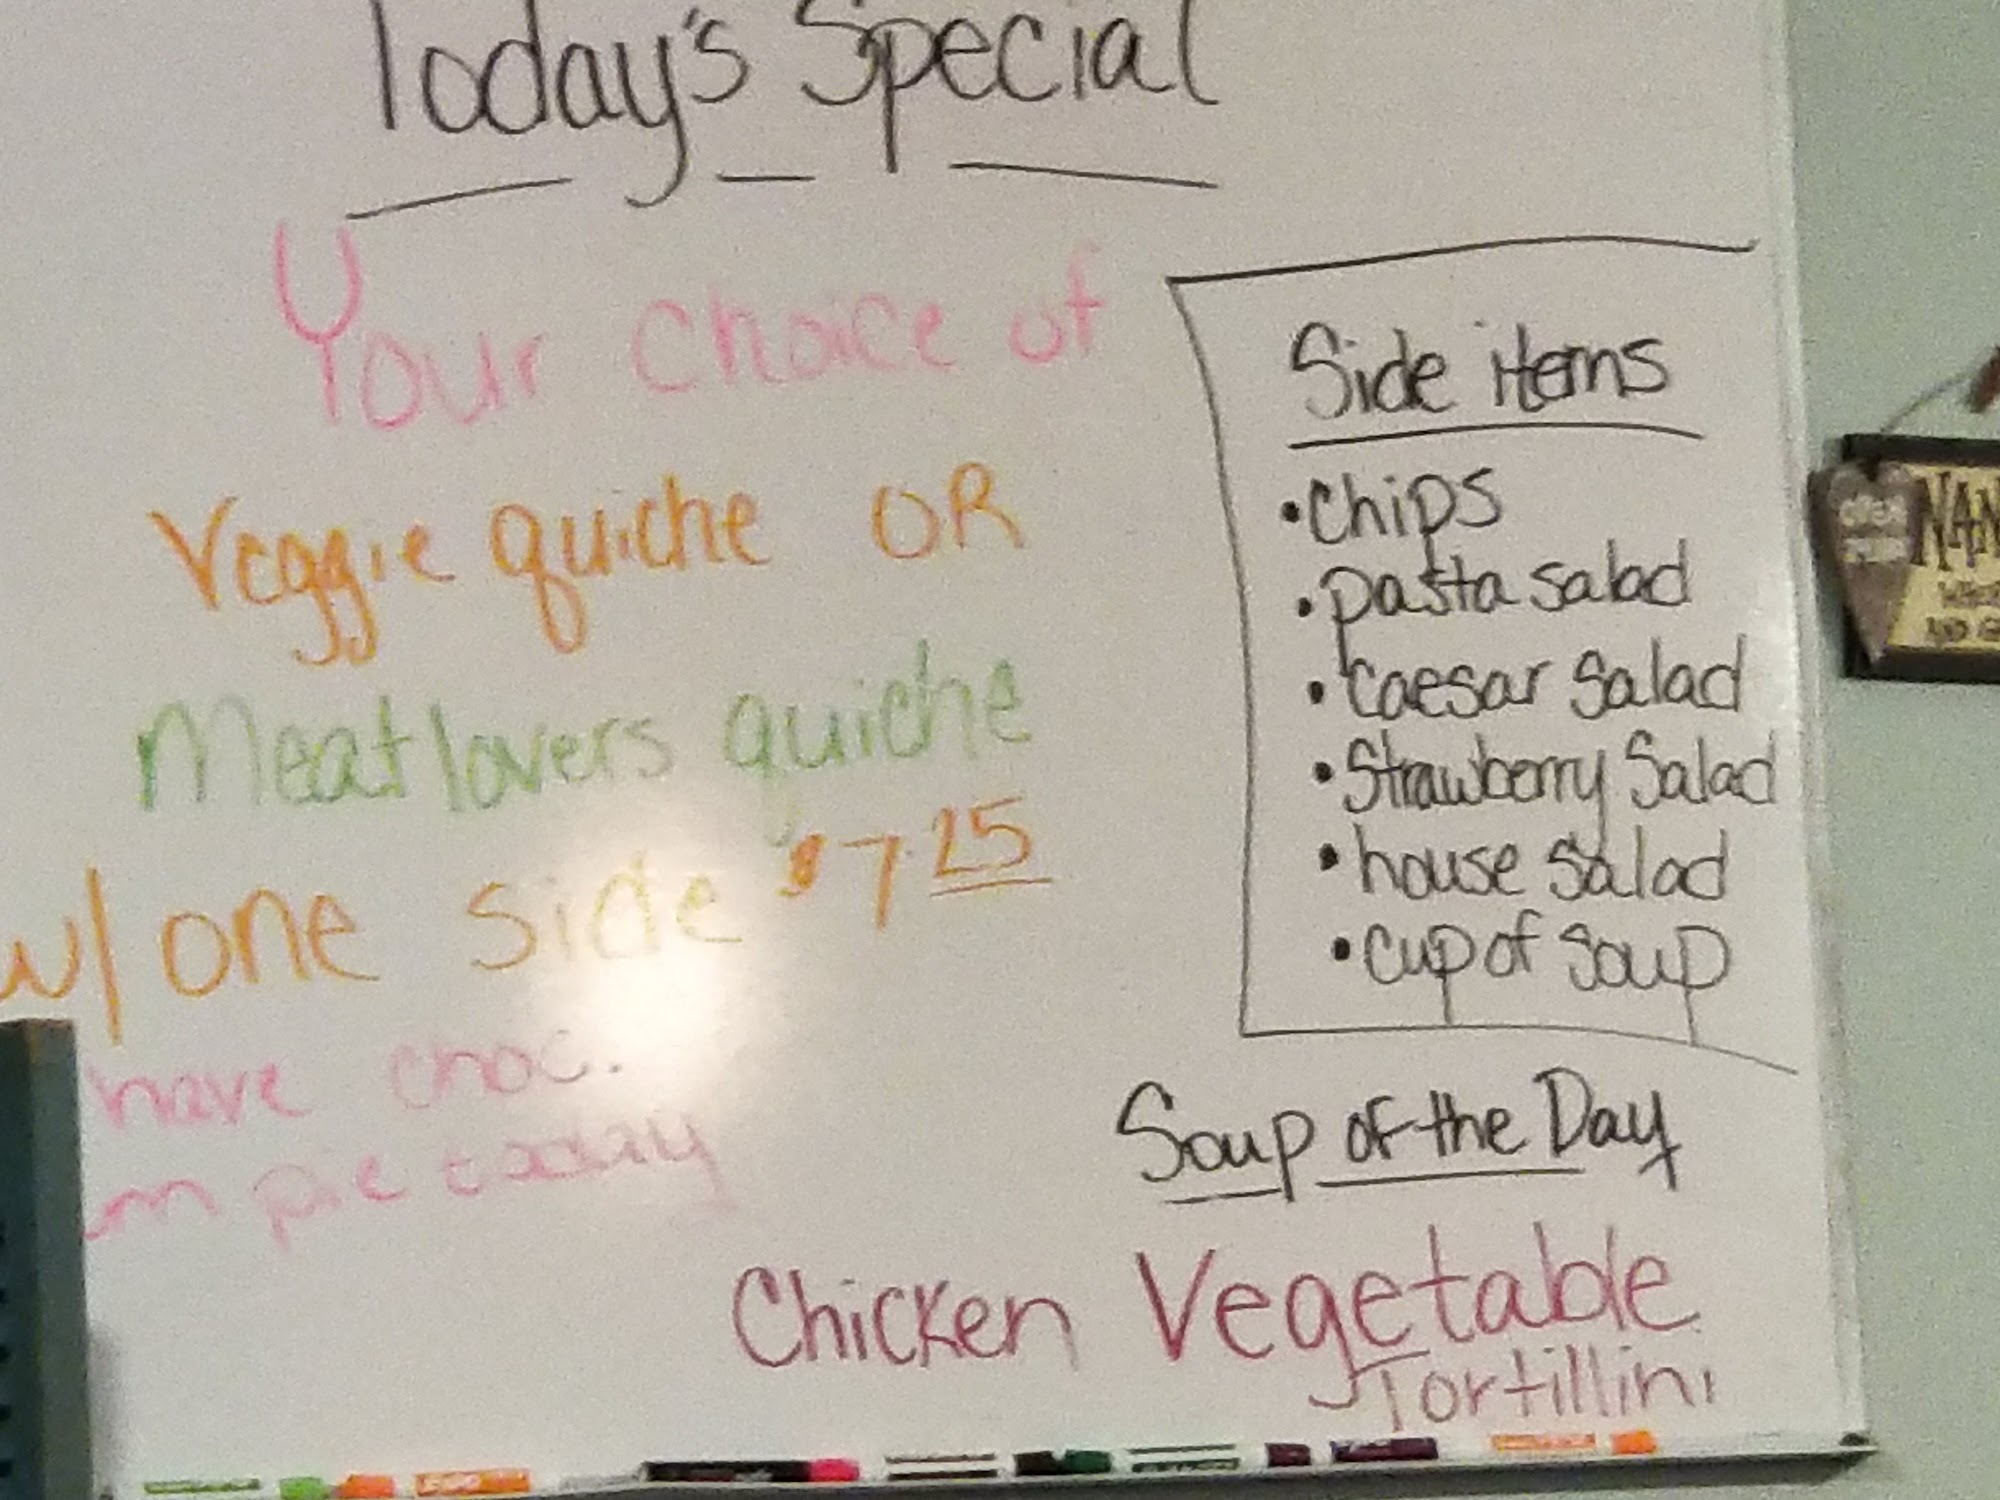 Today's Special
Your choice of
Veggie quiche OR
Meatlovers quiche
w/ one side $7.25
have choc.
pie today
Side items
• Chips
• pasta salad
• Caesar Salad
• Strawberry Salad
• house Salad
• cup of Soup
Soup of the Day
Chicken Vegetable
Tortillini
NAN